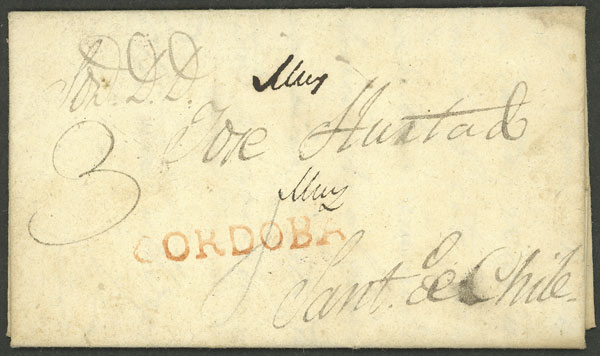 Sor. D. D.
Jose Hurtado
3
CORDOBA
Sant. de Chile